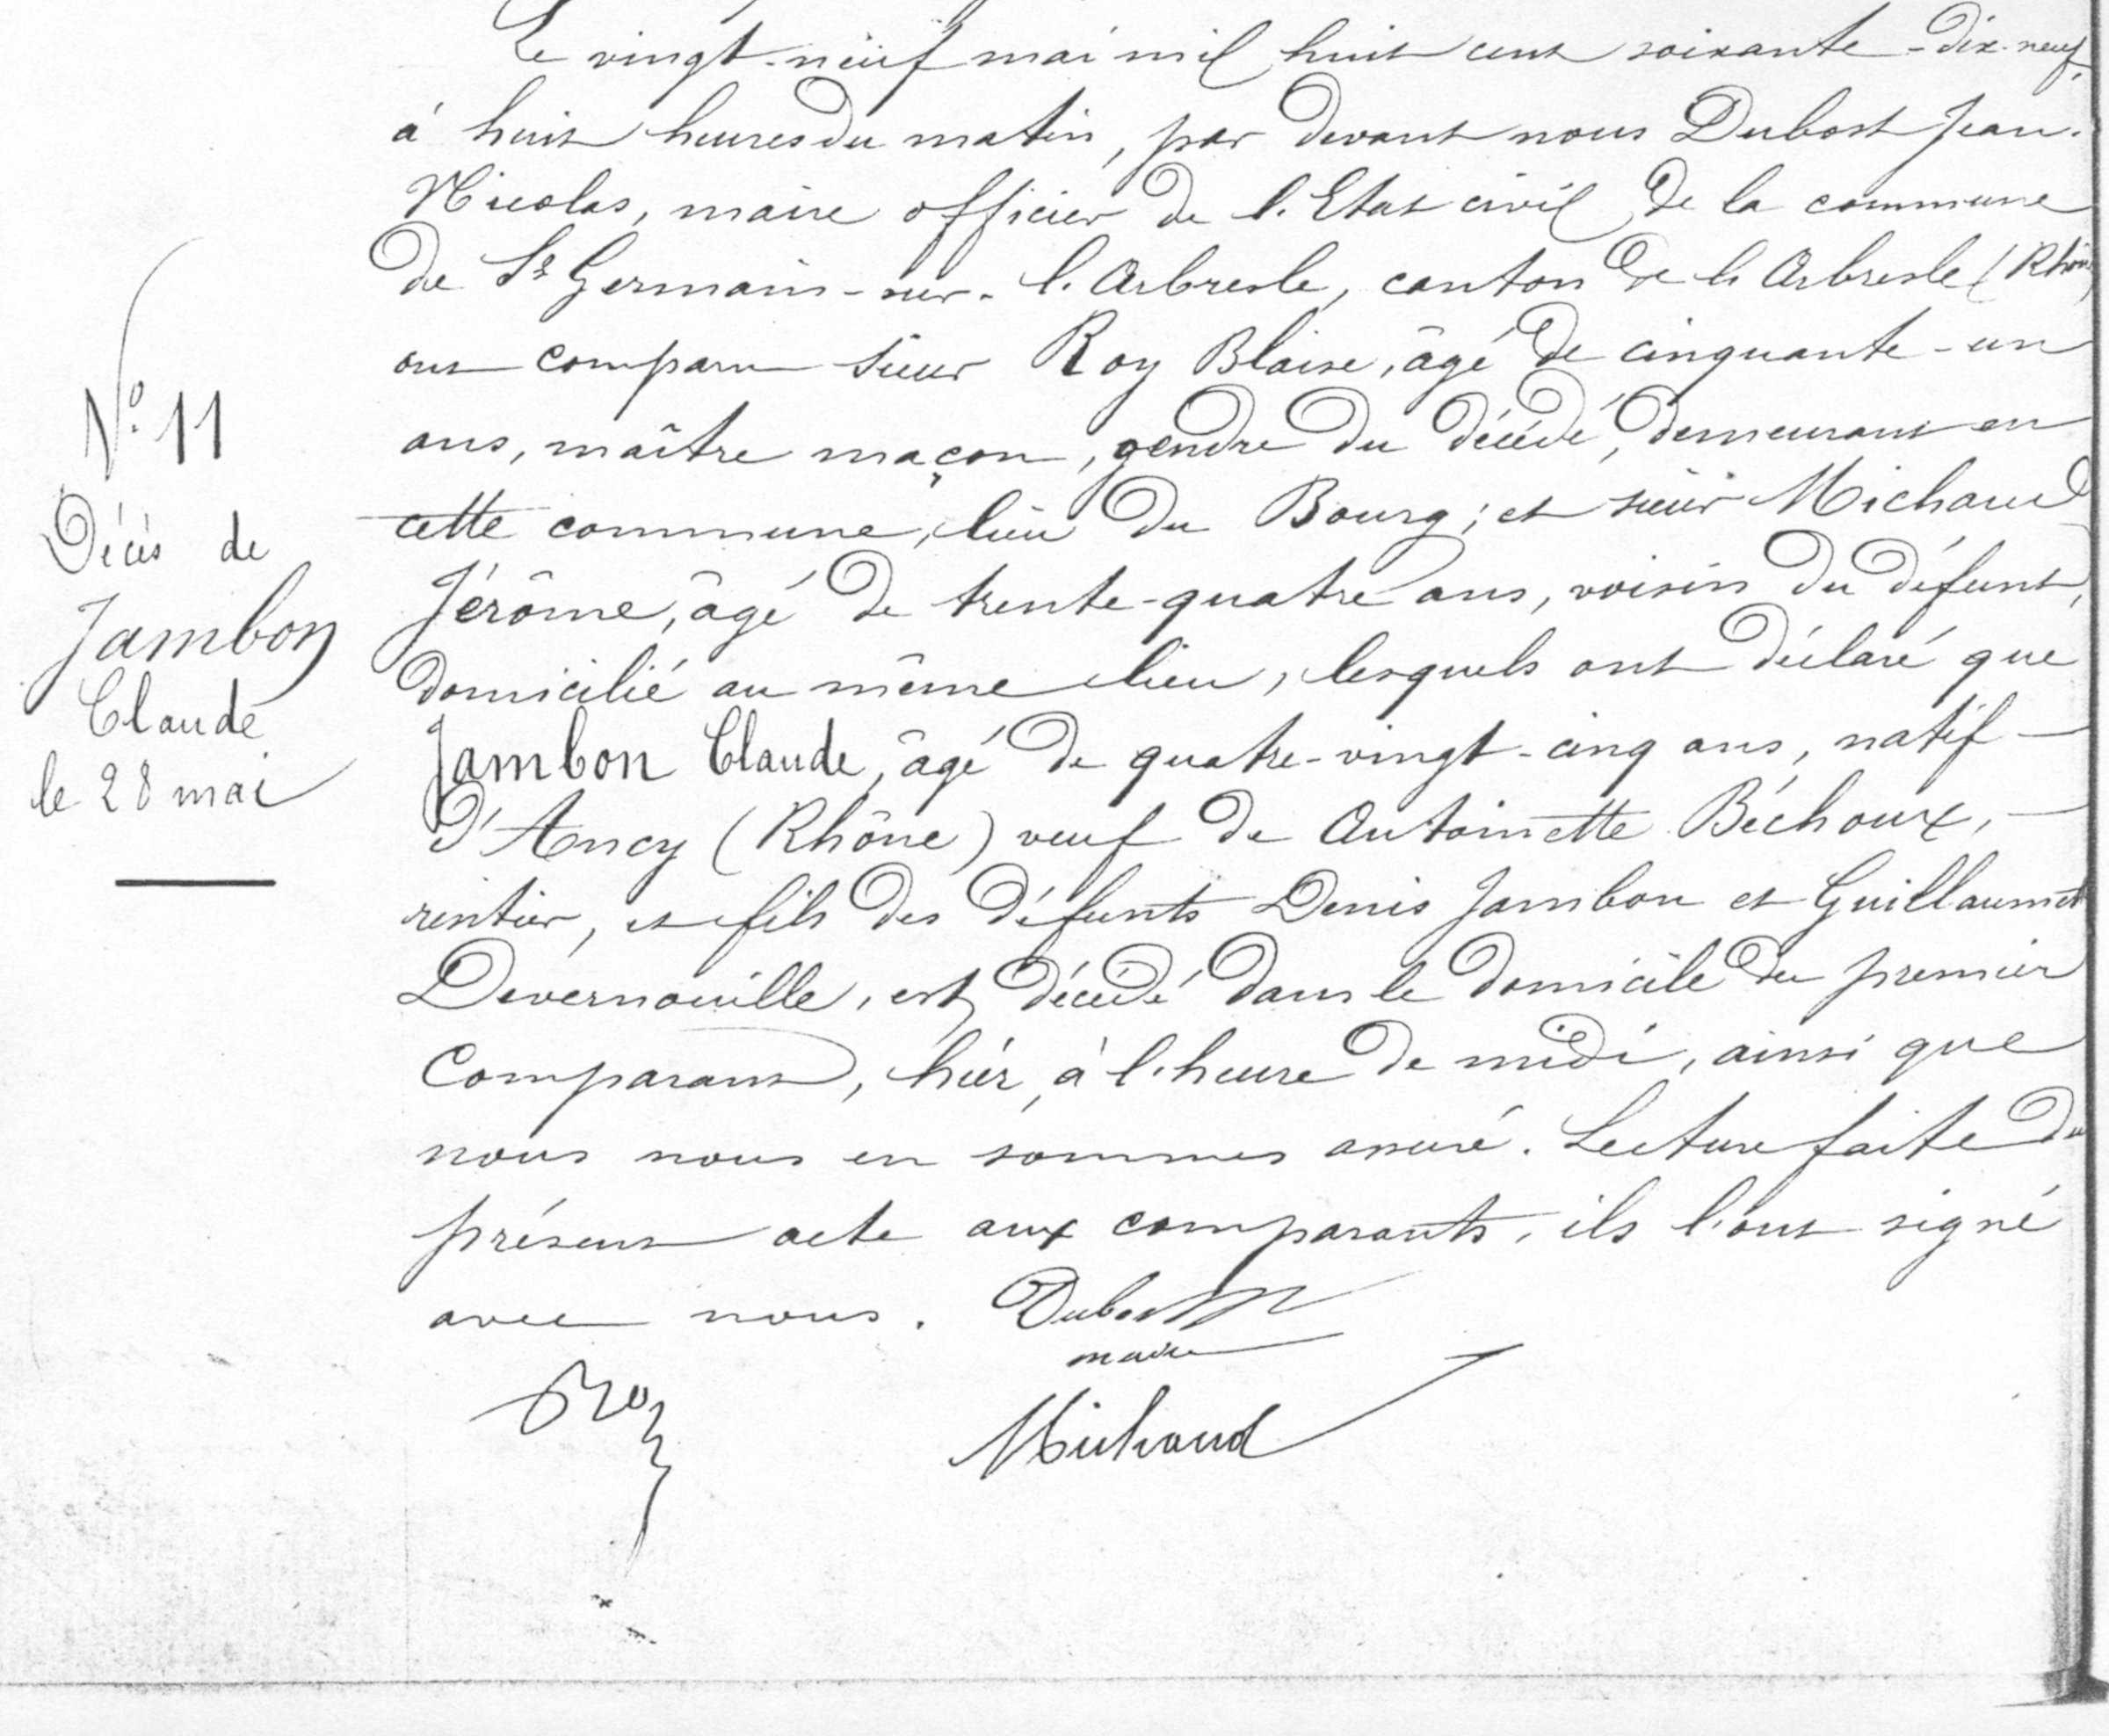 Le vingt-neuf mai mil huit cent soixante-dix-neuf,
à huit heures du matin, par devant nous Dubost Jean-
Nicolas, maire officier de l'Etat civil de la commune
de St Germain-sur-l'Arbresle, canton de l'Arbresle (Rhône)
ont comparu sieur Roy Blaise, âgé de cinquante-un
ans, maître maçon, gendre du décédé, demeurant en
cette commune, lieu du Bourg; et sieur Michaud
Jérôme, âgé de trente-quatre ans, voisin du défunt,
domicilié au même lieu, lesquels ont déclaré que
Jambon Claude, âgé de quatre-vingt-cinq ans, natif
d'Ancy (Rhône) veuf de Antoinette Béchoux,
rentier, et fils des défunts Denis Jambon et Guillaumette
Devernouille, est décédé dans le domicile du premier
Comparant, hier, à l'heure de midi, ainsi que
nous nous en sommes assuré. Lecture faite du
présent acte aux comparants, ils l'ont signé
avec nous. Dubost
maire
Roy
Michaud
N° 11
Décès de
Jambon
Claude
le 28 mai